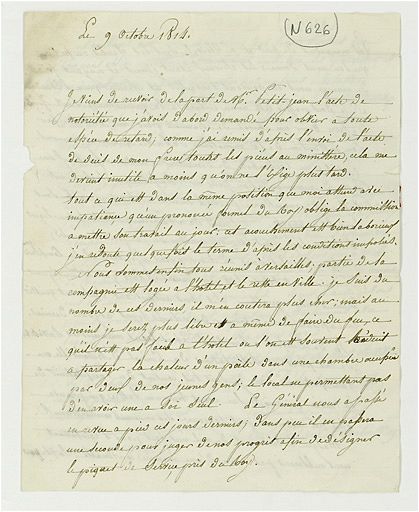 Le 9 Octobre 1814.
N626
Je viens de recevoir de la part de Mr. Petit jean l'acte de
notoriété que j'avois d'abord demandé pour obvier a toute
espèce de retard; comme j'ai remis d'après l'envoi de l'acte
de décès de mon frère toutes les pièces au ministère, cela me
devient inutile a moins qu'on ne l'exige plus tard.
tout ce qui est dans la même position que moi attend avec
impatience qu'un prononcé formel du Roy oblige la commission
a mettre son travail au jour; cet accouchement est bien laborieux
j'en redoute quelquefois le terme d'après les conditions imposées.
Nous sommes enfin tous réunis a Versailles, partie de la
compagnie est logée a l'hotel et le reste en ville; je suis du
nombre de ces derniers il m'en coutera plus cher; mais au
moins je serez plus libre et a même de faire du feu, ce
qu'il n'est pas a l'hotel ou l'on est souvent réduit
a partager la chaleur d'un poële dans une chambre
par de nos jeunes gens; le local ne permettant pas
d'en avoir une a soi seul. Le Général nous a passé
en revue a pied ces jours derniers; dans peu il en passera
une seconde pour juger de nos progrès afin de désigner
le piquet de service près du Roy.